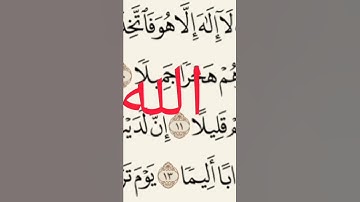 لَآ إِلَٰهَ إِلَّا هُوَ فَٱتَّخِذْ
هَجْرًا جَمِيلًا
الله
قَلِيلًا ١١ إِنَّ لَدَيْ
أَلِيمًا ١٣ يَوْمَ